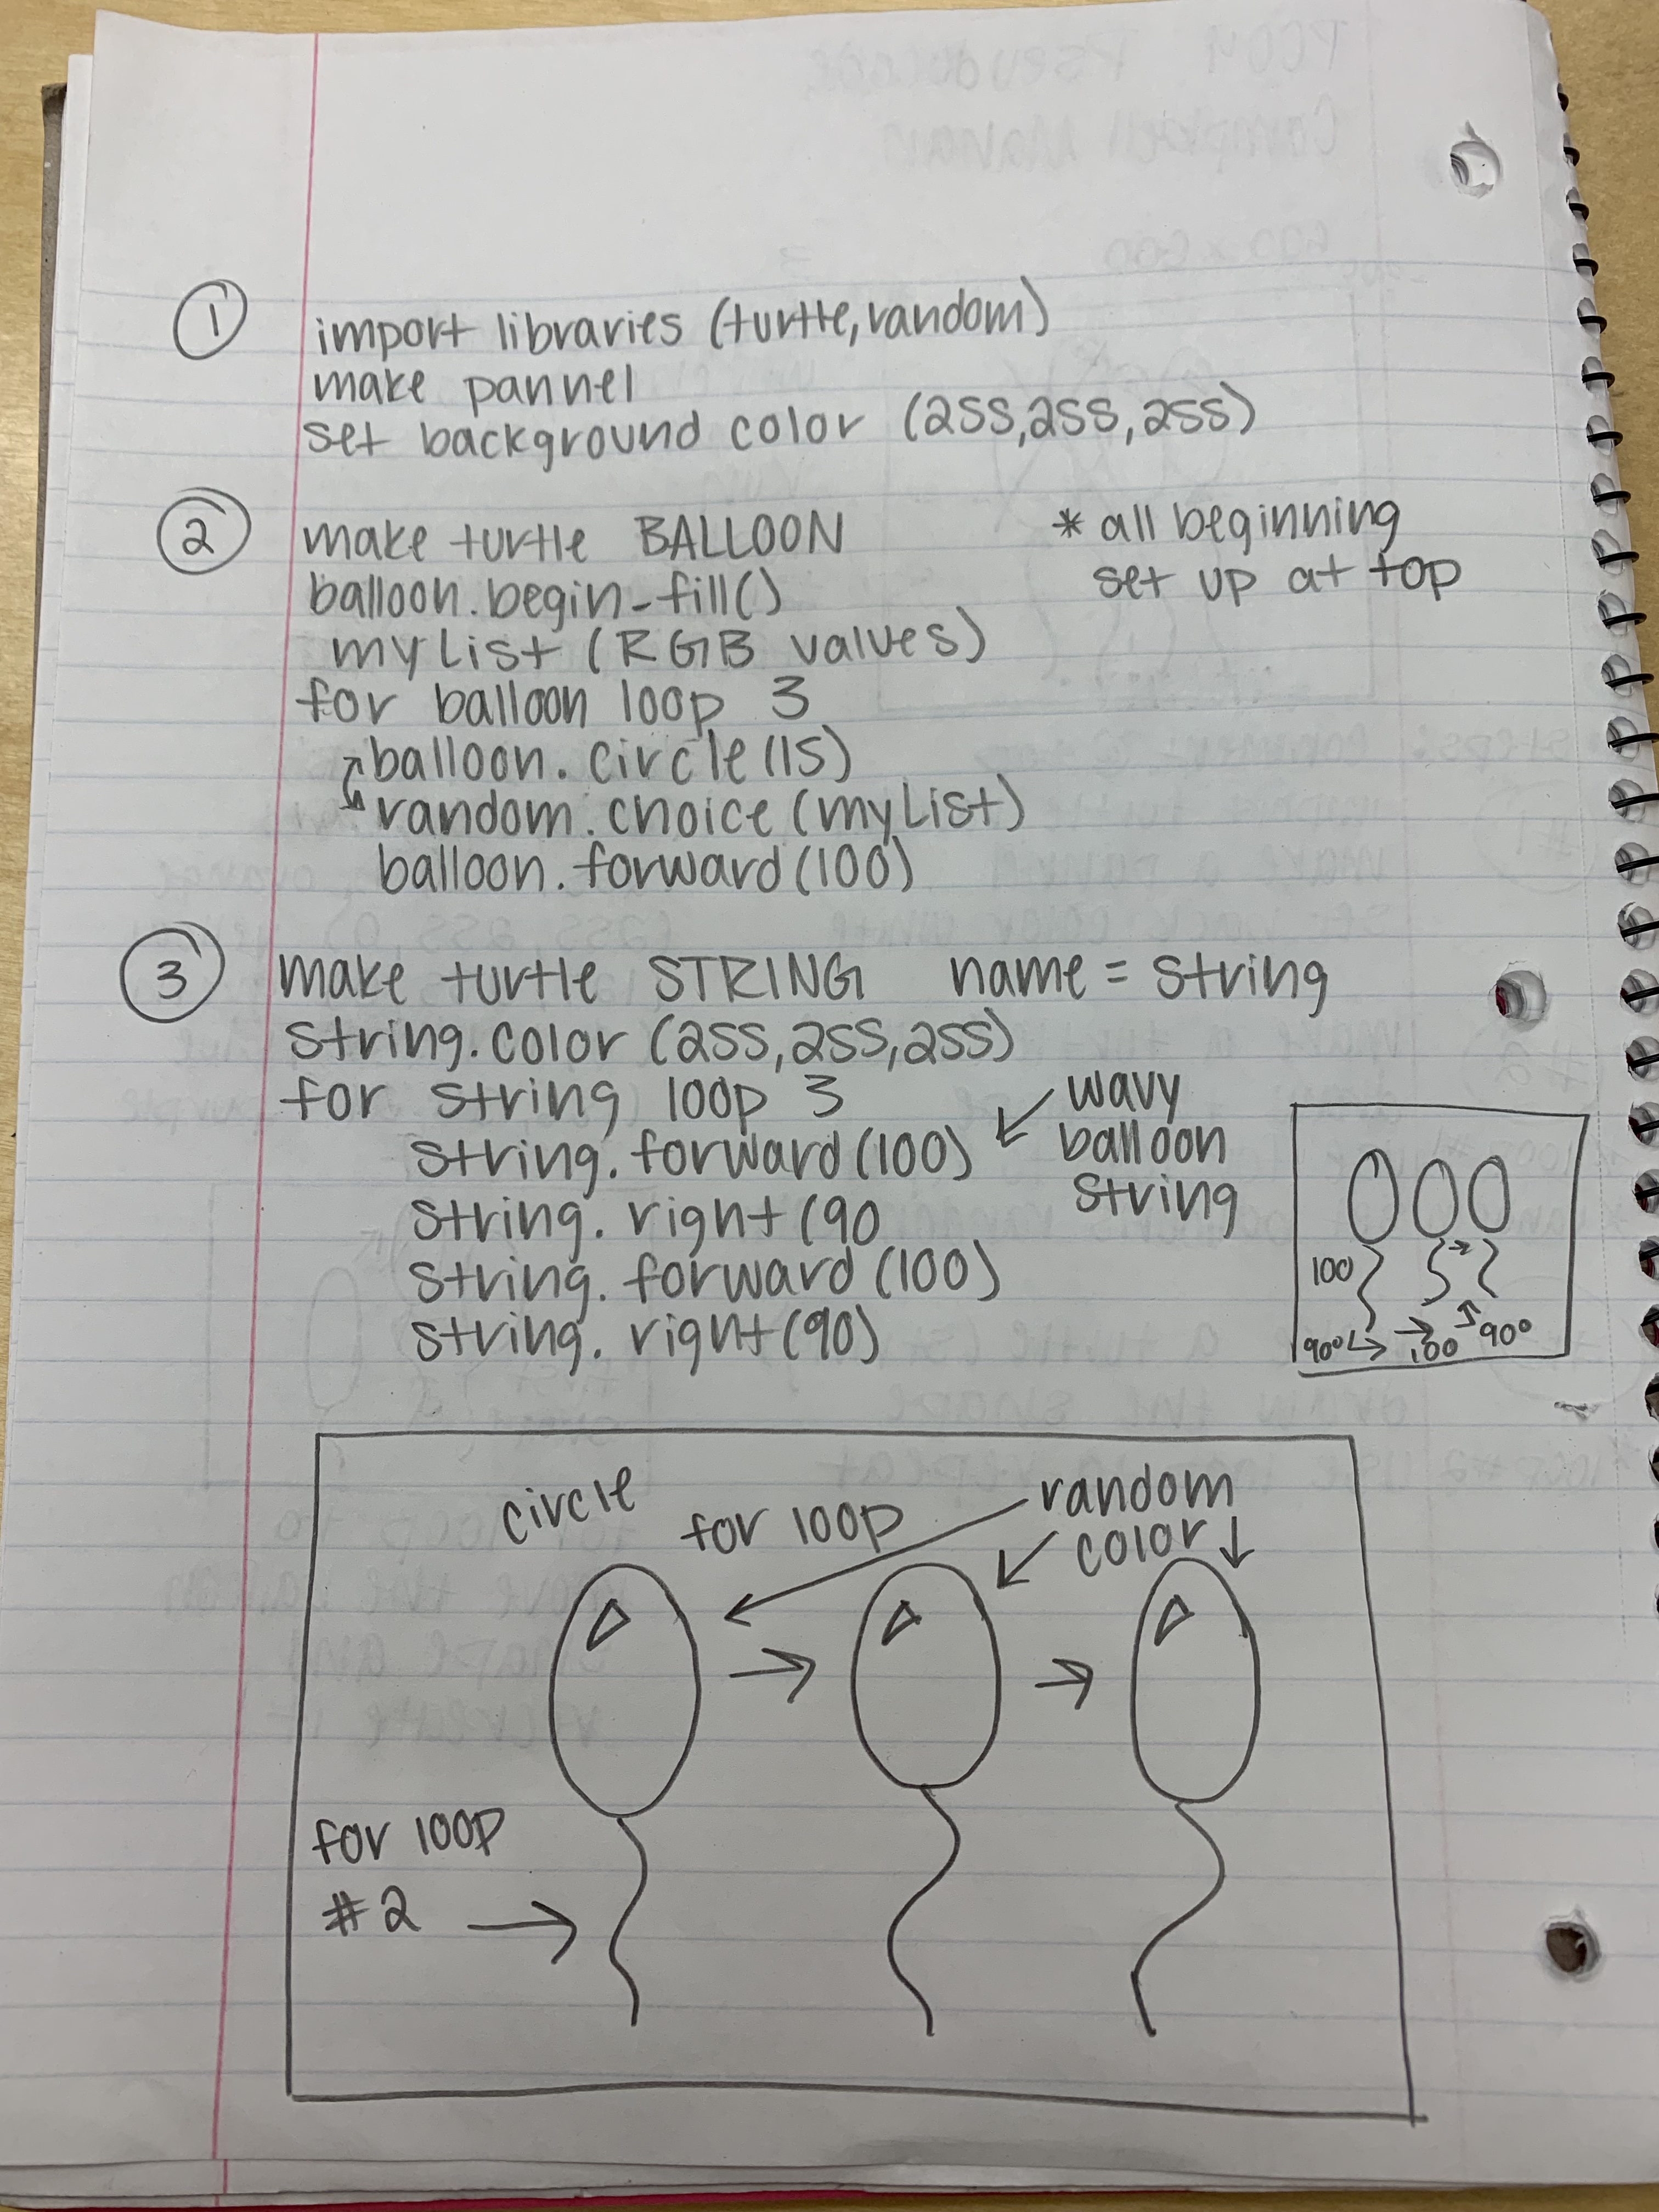 1
import libraries (turtle, random)
make pannel
set background color (255,255,255)
2
make turtle BALLOON
* all beginning
set up at top
balloon.begin-fill()
myList (RGB values)
for balloon loop 3
balloon.circle(15)
random.choice(myList)
balloon.forward(100)
3
make turtle STRING name = string
string.color (255,255,255)
for string loop 3
string.forward(100)
string.right(90
string.forward(100)
string.right(90)
wavy
balloon
string
100
90° 100 90°
circle
for loop
random
color
for loop
#2